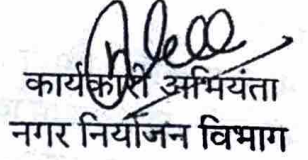 कार्यकारी अभियंता
नगर नियोजन विभाग